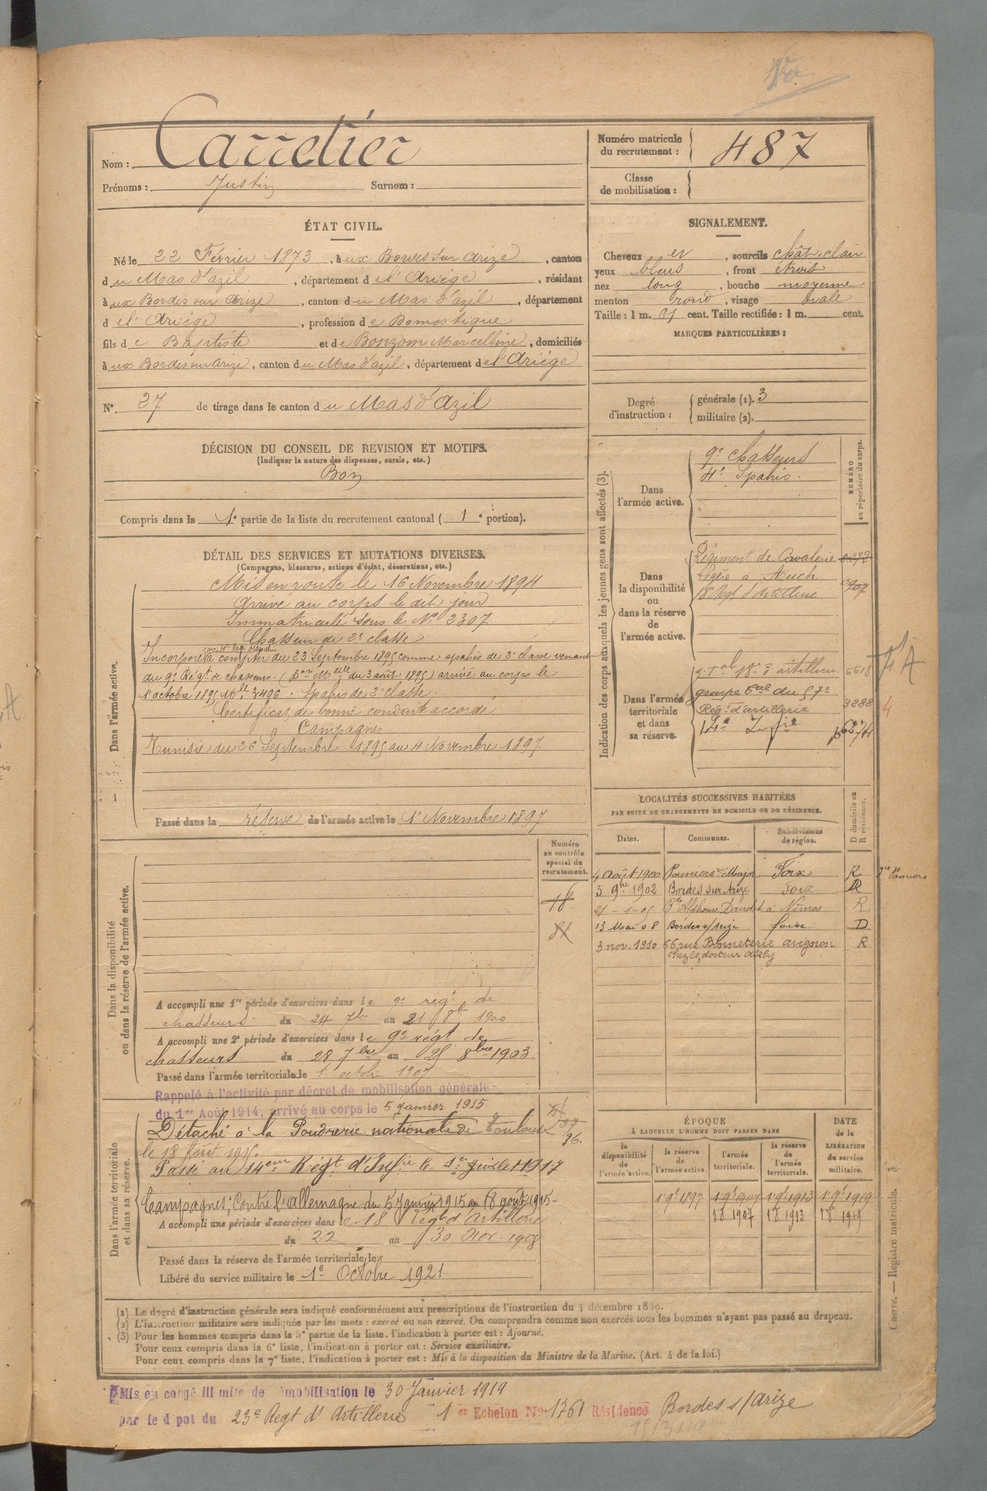 Nom : Carretier
Prénoms : Justin Surnom :
Numéro matricule du recrutement : 487
Classe de mobilisation :
ÉTAT CIVIL.
Né le 22 Février 1873, à ux Bordes sur Arize, canton
du Mas d'azil, département de l'Ariège, résidant
à ux Bordes sur Arize, canton du Mas d'azil, département
de l'Ariège, profession de Domestique
fils de Baptiste et de Bonzom Marcelline, domiciliés
à ux Bordes sur Arize, canton du Mas d'azil, département de l'Ariège
N° 27 de tirage dans le canton du Mas d'Azil
DÉCISION DU CONSEIL DE REVISION ET MOTIFS.
(Indiquer la nature des dispenses, sursis, etc.)
Bon
Compris dans la 1e partie de la liste du recrutement cantonal (1e portion).
SIGNALEMENT.
Cheveux , sourcils chât clair
yeux bleus, front étroit
nez long, bouche moyenne
menton rond, visage ovale
Taille : 1 m. cent. Taille rectifiée : 1 m. cent.
MARQUES PARTICULIÈRES :
Degré d'instruction : générale (1). 3
militaire (2).
DÉTAIL DES SERVICES ET MUTATIONS DIVERSES.
(Campagnes, blessures, actions d'éclat, décorations, etc.)
Dans l'armée active.
Mis en route le 16 Novembre 1894
Arrivé au corps le dit jour
Immatriculé sous le N° 2307
Chasseur de 2e classe
Incorporé à compter du 23 Septembre 1895 comme spahis de 2e classe venant
du 9e Régt de chasseurs. (Don Mlle du 3 août 1895) arrivé au corps le
1er octobre 1895 Mle 3496. Spahis de 2e classe.
Certificat de bonne conduite accordé
Campagnes
Tunisie du 26 Septembre 1895 au 4 Novembre 1897
Passé dans la réserve de l'armée active le 1er Novembre 1897
Indication des corps auxquels les jeunes gens sont affectés (3).
NUMÉRO au répertoire du corps.
Dans l'armée active.
9e Chasseurs
4e Spahis.
Dans la disponibilité ou dans la réserve de l'armée active.
Régiment de Cavalerie
Légère à Auch
18e Regt d'Artillerie
Dans l'armée territoriale et dans sa réserve.
groupe du 57e
Regt d'artillerie 3288
14e Infie
LOCALITÉS SUCCESSIVES HABITÉES
PAR SUITE DE CHANGEMENTS DE DOMICILE OU DE RÉSIDENCE.
Dates. Communes. Subdivisions de région. D domicile ou R résidence.
4 Août 1900 Pamiers Foix R
5 9bre 1902 Bordes sur Arize Foix D
Alphonse Daudet à Nîmes R
13 Mai 08 Bordes s/ Arize foix D
3 nov. 1920 66 rue Bonneterie avignon R
chez le docteur
Numéro au contrôle spécial du recrutement.
Dans la disponibilité ou dans la réserve de l'armée active.
A accompli une 1re période d'exercices dans le 9e régt de
chasseurs du 24 7b au 21 8b 1900
A accompli une 2e période d'exercices dans le 9e régt de
chasseurs du 28 7bre au 25 8bre 1903
Passé dans l'armée territoriale le 1er octob 1907
Rappelé à l'activité par décret de mobilisation générale
du 1er Août 1914, arrivé au corps le 5 janvier 1915
Dans l'armée territoriale et dans sa réserve.
Détaché à la Poudrerie nationale de Toulouse
le 18 août 1915
Passé au 14eme Régt d'Infie le 1er Juillet 1917
Campagnes: Contre l'allemagne du 5 janvier 1915 au 18 août 1915
A accompli une période d'exercices dans le 18e Régt d'artillerie
du 22 au 30 Nov. 1908
Passé dans la réserve de l'armée territoriale le
Libéré du service militaire le 1er Octobre 1921
ÉPOQUE
À LAQUELLE L'HOMME DOIT PASSER DANS
la disponibilité de l'armée active. la réserve de l'armée active. l'armée territoriale. la réserve de l'armée territoriale.
DATE de la LIBÉRATION du service militaire.
1 9b 1897 1 9b 1907 1 9b 1913 1 9b 1919
(1) Le degré d'instruction générale sera indiqué conformément aux prescriptions de l'instruction du 4 décembre 1889.
(2) L'instruction militaire sera indiquée par les mots : exercé ou non exercé. On comprendra comme non exercés tous les hommes n'ayant pas passé au drapeau.
(3) Pour les hommes compris dans la 5e partie de la liste, l'indication à porter est : Ajourné.
Pour ceux compris dans la 6e liste, l'indication à porter est : Service auxiliaire.
Pour ceux compris dans la 7e liste, l'indication à porter est : Mis à la disposition du Ministre de la Marine. (Art. 4 de la loi.)
Guerre. — Registre matricule. 3
Mis en congé illimité de démobilisation le 30 Janvier 1919
par le dépôt du 23e Regt d'Artillerie 1er Echelon No 1761 Résidence Bordes s/Arize